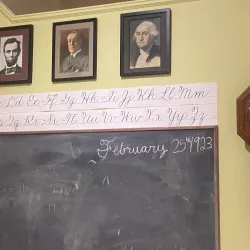 Dd Ee Ff Gg Hh Ii Jj Kk Ll Mm
Rr Ss Tt Uu Vv Ww Xx Yy Zz
February 25 1923